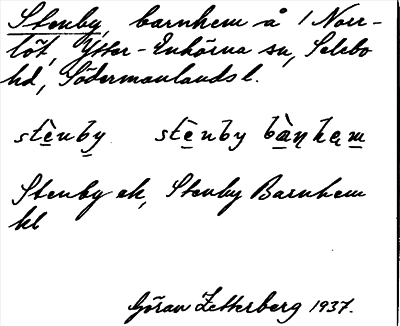 Stenby, barnhem å 1 Norr-
töt, Ytter-Enhörna sn, Selebo
hd, Södermanlands l.
stènby stènby bàɳhęm
Stenby ek, Stenby Barnhem
kl
Göran Zetterberg 1937.